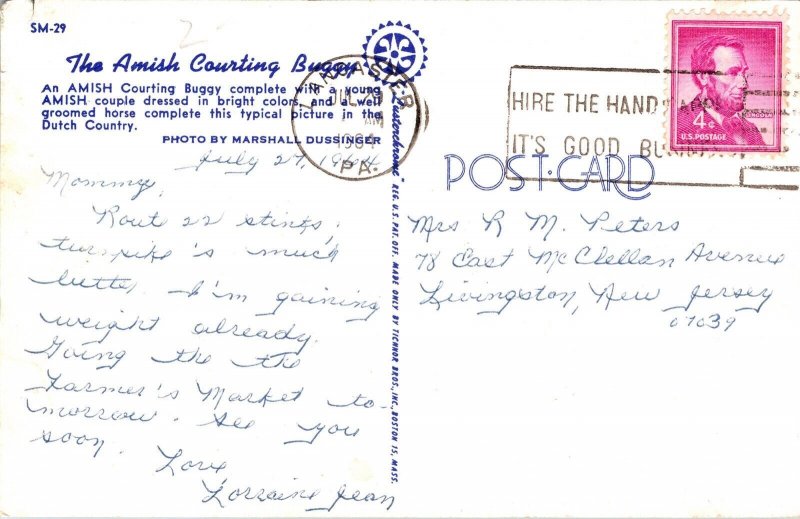 SM-29
The Amish Courting Buggy
An AMISH Courting Buggy complete with a young
AMISH couple dressed in bright colors, and a well
groomed horse complete this typical picture in the
Dutch Country.
PHOTO BY MARSHALL DUSSINGER
July 27, 1964
Mommzy,
Rout 22 stinks,
turnpike's much
better. I'm gaining
weight already.
Going the the
Farmer's Market to-
morrow. See you
soon.
Love
Lorraine Jean
REG. U.S. PAT. OFF. MADE ONLY BY TICHNOR BROS., INC., BOSTON 15, MASS.
LANCASTER
JUL 29
AM
1964
PA.
HIRE THE
IT'S GOOD
4¢
U.S. POSTAGE
POST-CARD
Mrs R M. Peters
78 East McClellan Avenue
Livingston, New Jersey
07039